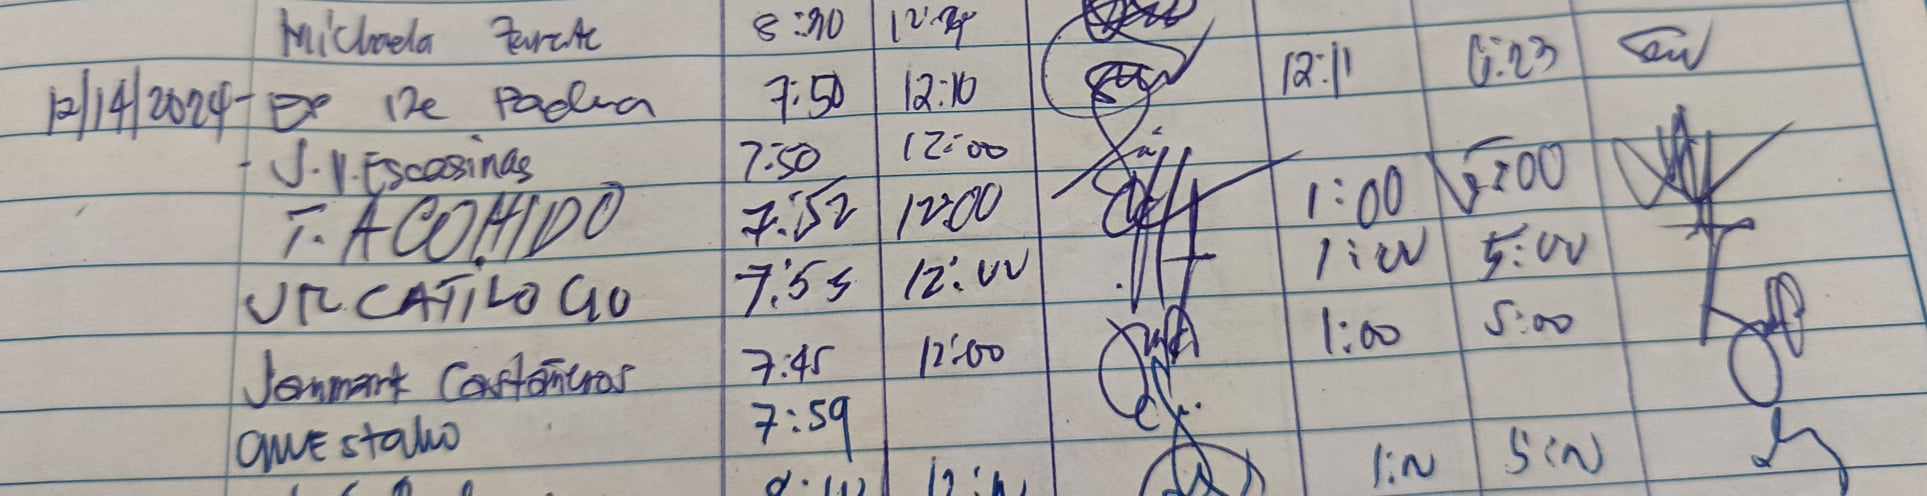 Michaela Zarate 8:20
12/14/2024 - De Padua 7:50 12:10 12:11 5:23
- J.V. Escosinas 7:50 12:00
T. ACOHIDO 7:52 12:00 1:00 5:00
JR. CATILOGO 7:53 12:00 1:00 5:00
Jonmark Castañeros 7:45 12:00 1:00 5:00
7:59
1:00 5:00